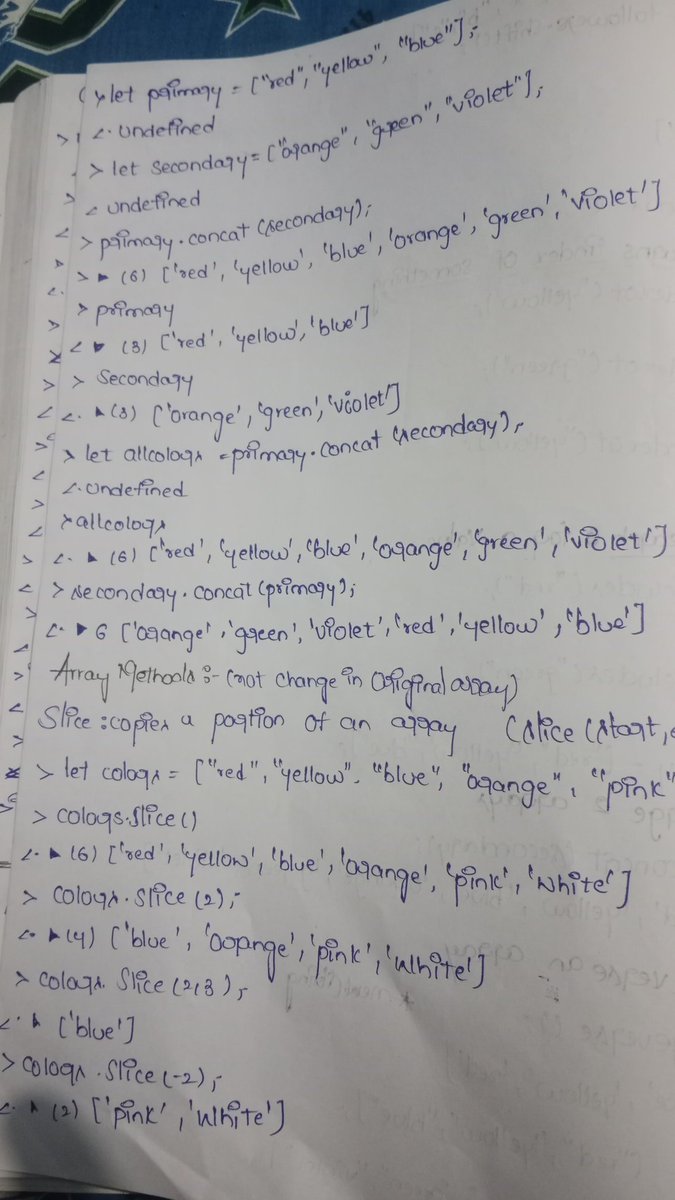 > let primary = ["red", "yellow", "blue"];
<. undefined
> let secondary = ["orange", "green", "violet"];
< undefined
> primary.concat (secondary);
> ▸ (6) ['red', 'yellow', 'blue', 'orange', 'green', 'violet']
> primary
< ▸ (3) ['red', 'yellow', 'blue']
> Secondary
<. ▸ (3) ['orange', 'green', 'violet']
> let allcolors = primary.concat (secondary);
<. undefined
> allcolors
<. ▸ (6) ['red', 'yellow', 'blue', 'orange', 'green', 'violet']
> secondary.concat (primary);
<. ▸ 6 ['orange', 'green', 'violet', 'red', 'yellow', 'blue']
Array Methods :- (not change in original array)
Slice : copies a portion of an array (slice (start,
> let colors = ["red", "yellow". "blue", "orange", "pink"
> colors.slice ()
<. ▸ (6) ['red', 'yellow', 'blue', 'orange', 'pink', 'white']
> colors.slice (2);
<. ▸ (4) ['blue', 'orange', 'pink', 'white']
> colors. slice (2,3);
<. ▸ ['blue']
> colors .slice (-2);
<. ▸ (2) ['pink', 'white']